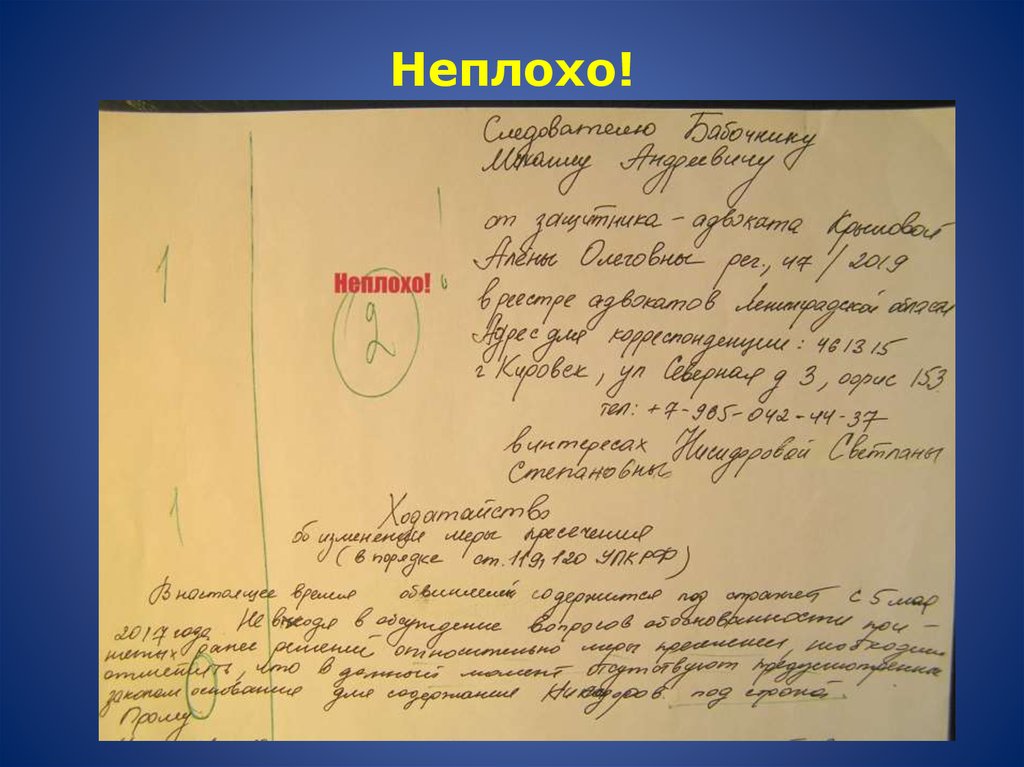 Неплохо!
Следователю Бабочкину
Михаилу Андреевичу
от защитника – адвоката Крыловой
Алёны Олеговны рег., 47 / 2019
в реестре адвокатов Ленинградской области
Адрес для корреспонденции: 461315
г Кировск, ул Северная д 3, офис 153
тел: +7-965-042-44-37
в интересах Никифоровой Светланы
Степановны
1
Неплохо!
2
1
Ходатайство
об изменении меры пресечения
(в порядке ст. 119, 120 УПК РФ)
В настоящее время обвиняемый содержится под стражей с 5 мая
2017 года. Не входя в обсуждение вопросов обоснованности при-
нятых ранее решений относительно меры пресечения, необходимо
отметить, что в данный момент отсутствуют предусмотренные
законом основания для содержания под стражей.
Прошу